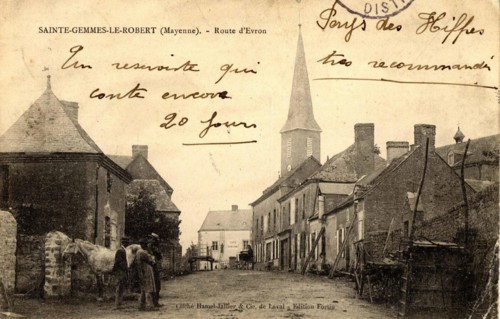 SAINTE-GEMMES-LE-ROBERT (Mayenne). - Route d'Evron
Pays des Hiffes
DIST
Un reserviste qui
conte encore
20 jours
tres recommandé
Cliché Hamel-Jallier & Cie, de Laval - Edition